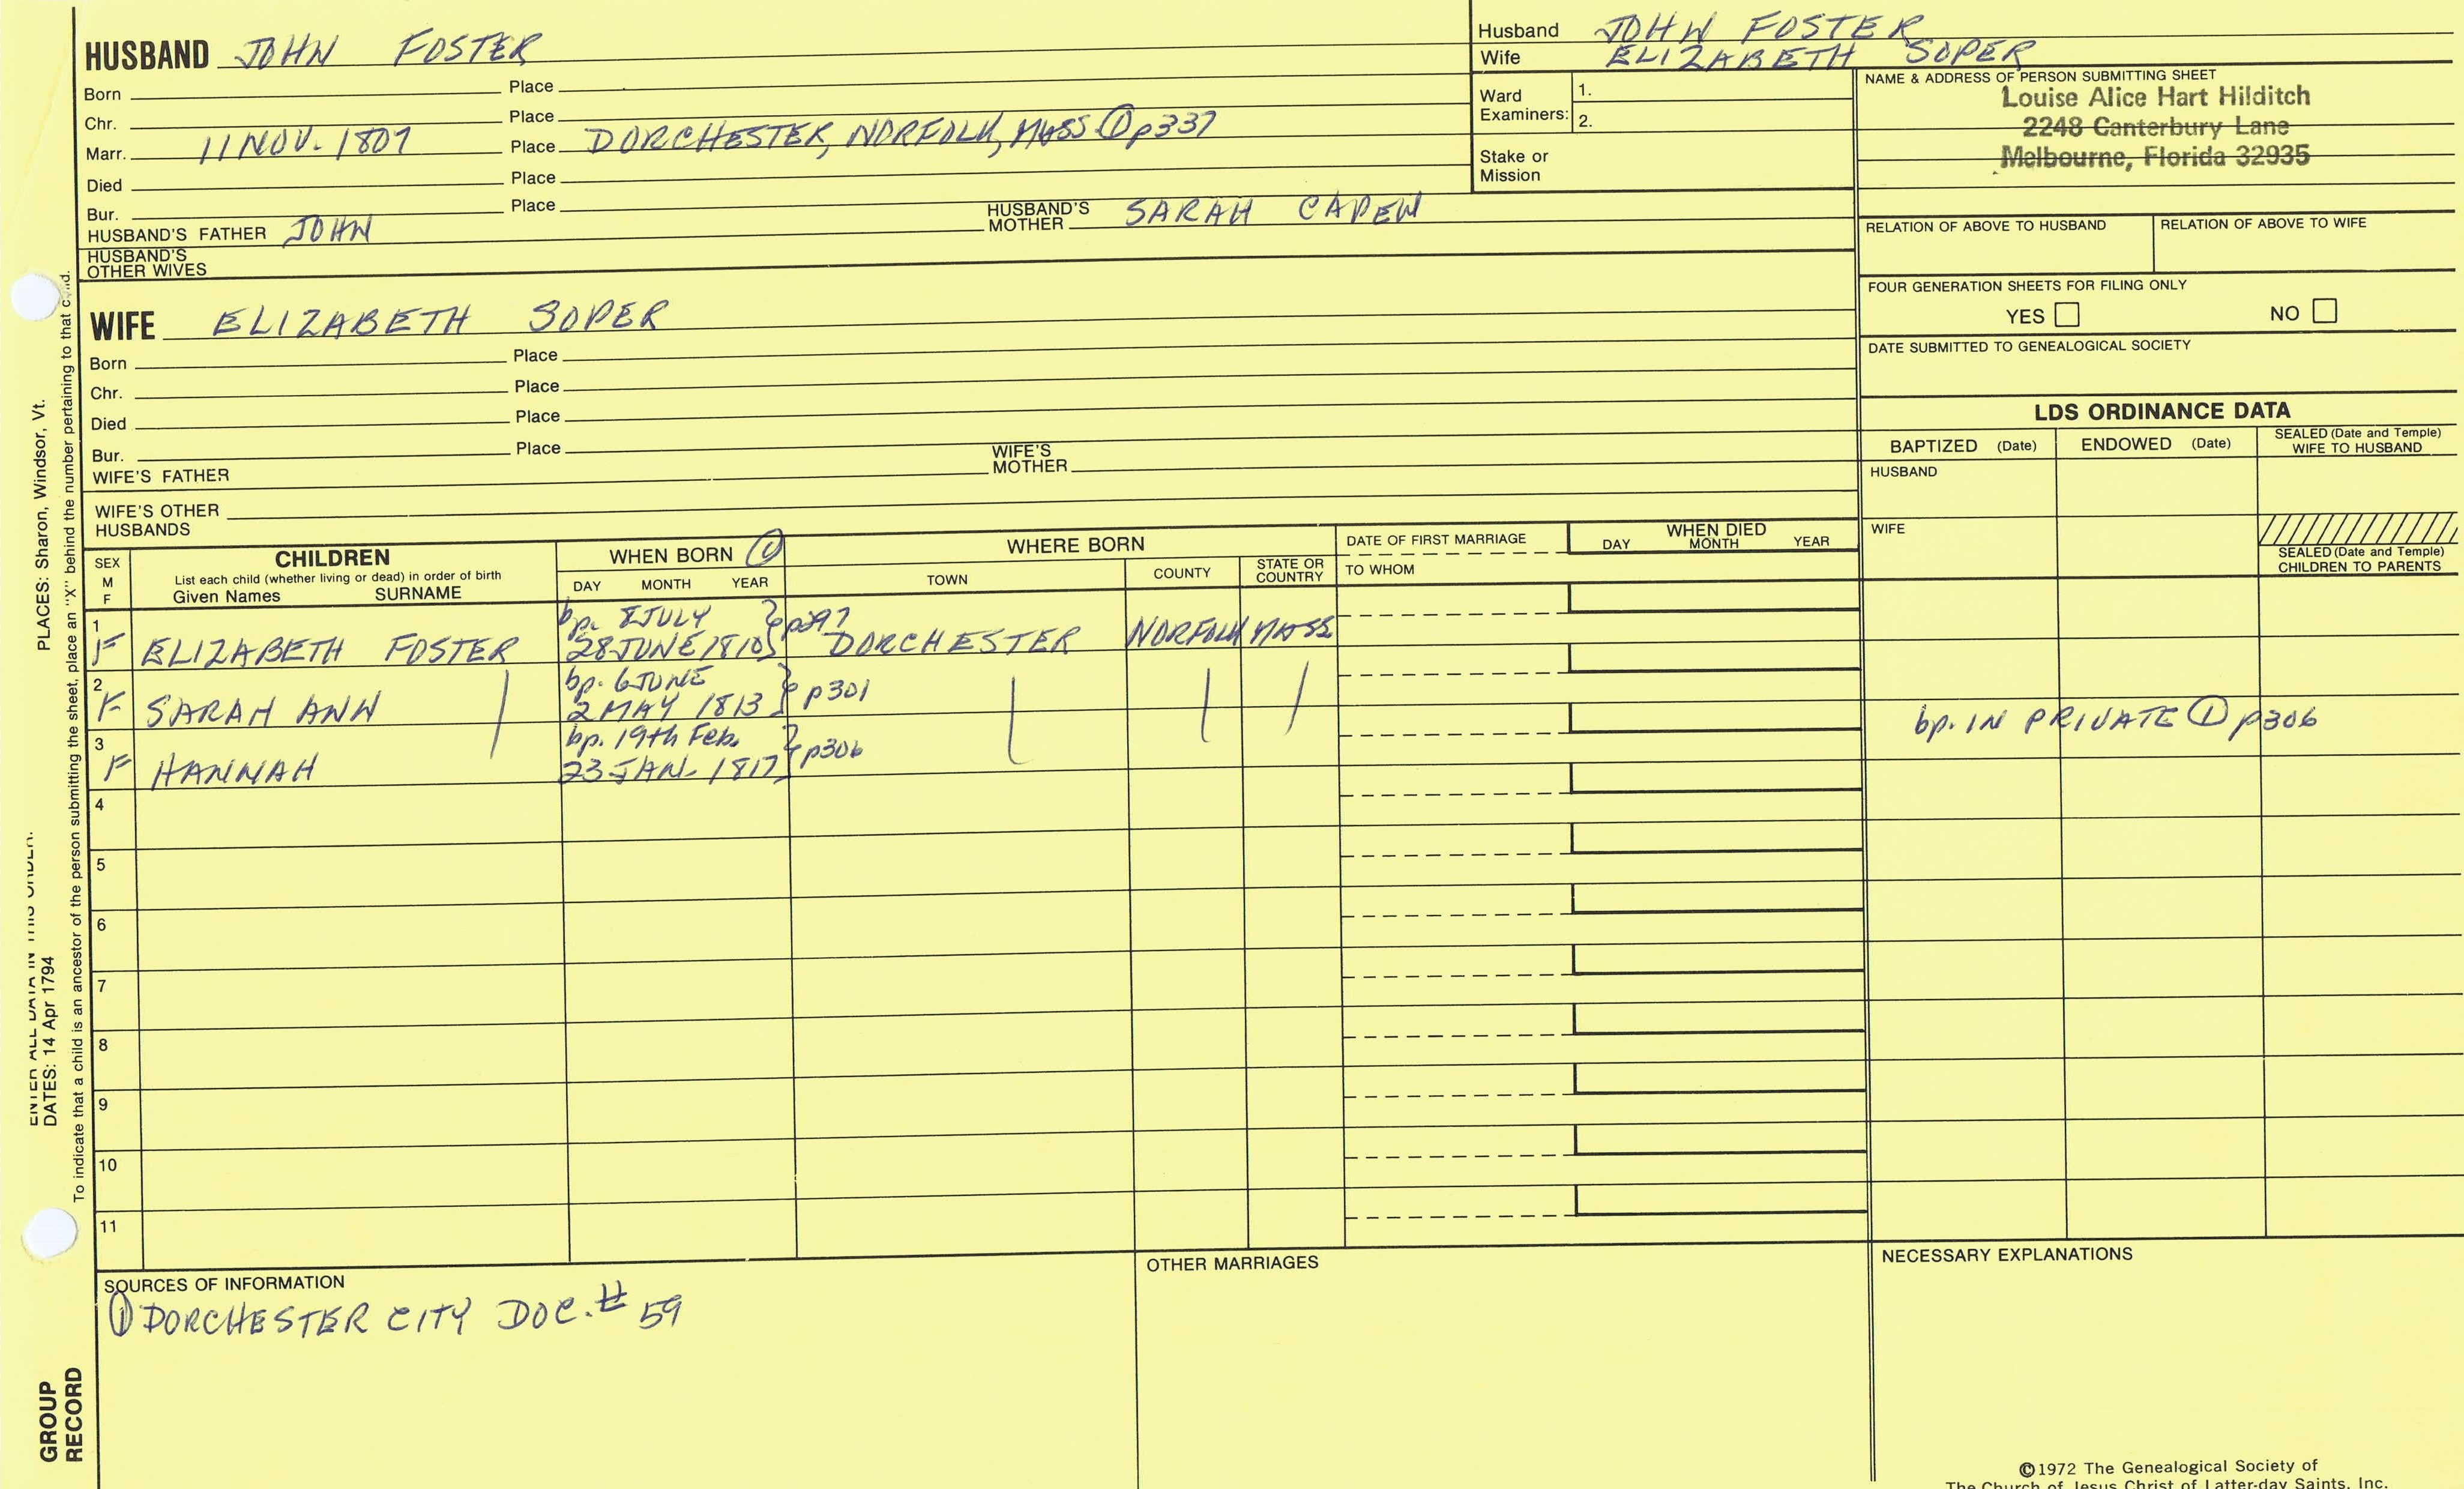 HUSBAND JOHN FOSTER
Born Place
Chr. Place
Marr. 11 NOV. 1807 Place DORCHESTER, NORFOLK, MASS ① p337
Died Place
Bur. Place
HUSBAND'S FATHER JOHN HUSBAND'S MOTHER SARAH CAPEN
HUSBAND'S OTHER WIVES
Husband JOHN FOSTER
Wife ELIZABETH SOPER
Ward Examiners: 1.
2.
Stake or Mission
NAME & ADDRESS OF PERSON SUBMITTING SHEET
Louise Alice Hart Hilditch
2248 Canterbury Lane
Melbourne, Florida 32935
RELATION OF ABOVE TO HUSBAND RELATION OF ABOVE TO WIFE
FOUR GENERATION SHEETS FOR FILING ONLY
YES NO
DATE SUBMITTED TO GENEALOGICAL SOCIETY
WIFE ELIZABETH SOPER
Born Place
Chr. Place
Died Place
Bur. Place
WIFE'S FATHER WIFE'S MOTHER
WIFE'S OTHER HUSBANDS
LDS ORDINANCE DATA
BAPTIZED (Date) ENDOWED (Date) SEALED (Date and Temple) WIFE TO HUSBAND
HUSBAND
WIFE
SEALED (Date and Temple) CHILDREN TO PARENTS
SEX M F
CHILDREN
List each child (whether living or dead) in order of birth
Given Names SURNAME
WHEN BORN ①
DAY MONTH YEAR
WHERE BORN
TOWN COUNTY STATE OR COUNTRY
DATE OF FIRST MARRIAGE
TO WHOM
WHEN DIED
DAY MONTH YEAR
1 bp. 8 JULY
F ELIZABETH FOSTER 28 JUNE 1810 } p297 DORCHESTER NORFOLK MASS
2 bp. 6 JUNE
F SARAH ANN 2 MAY 1813 } p301
3 bp. 19th Feb. bp. IN PRIVATE ① p306
F HANNAH 23 JAN. 1817 } p306
4
5
6
7
8
9
10
11
SOURCES OF INFORMATION
① DORCHESTER CITY DOC. # 59
OTHER MARRIAGES
NECESSARY EXPLANATIONS
©1972 The Genealogical Society of
The Church of Jesus Christ of Latter-day Saints, Inc.
ENTER ALL DATA IN THIS ORDER:
DATES: 14 Apr 1794
PLACES: Sharon, Windsor, Vt.
To indicate that a child is an ancestor of the person submitting the sheet, place an "X" behind the number pertaining to that child.
GROUP
RECORD